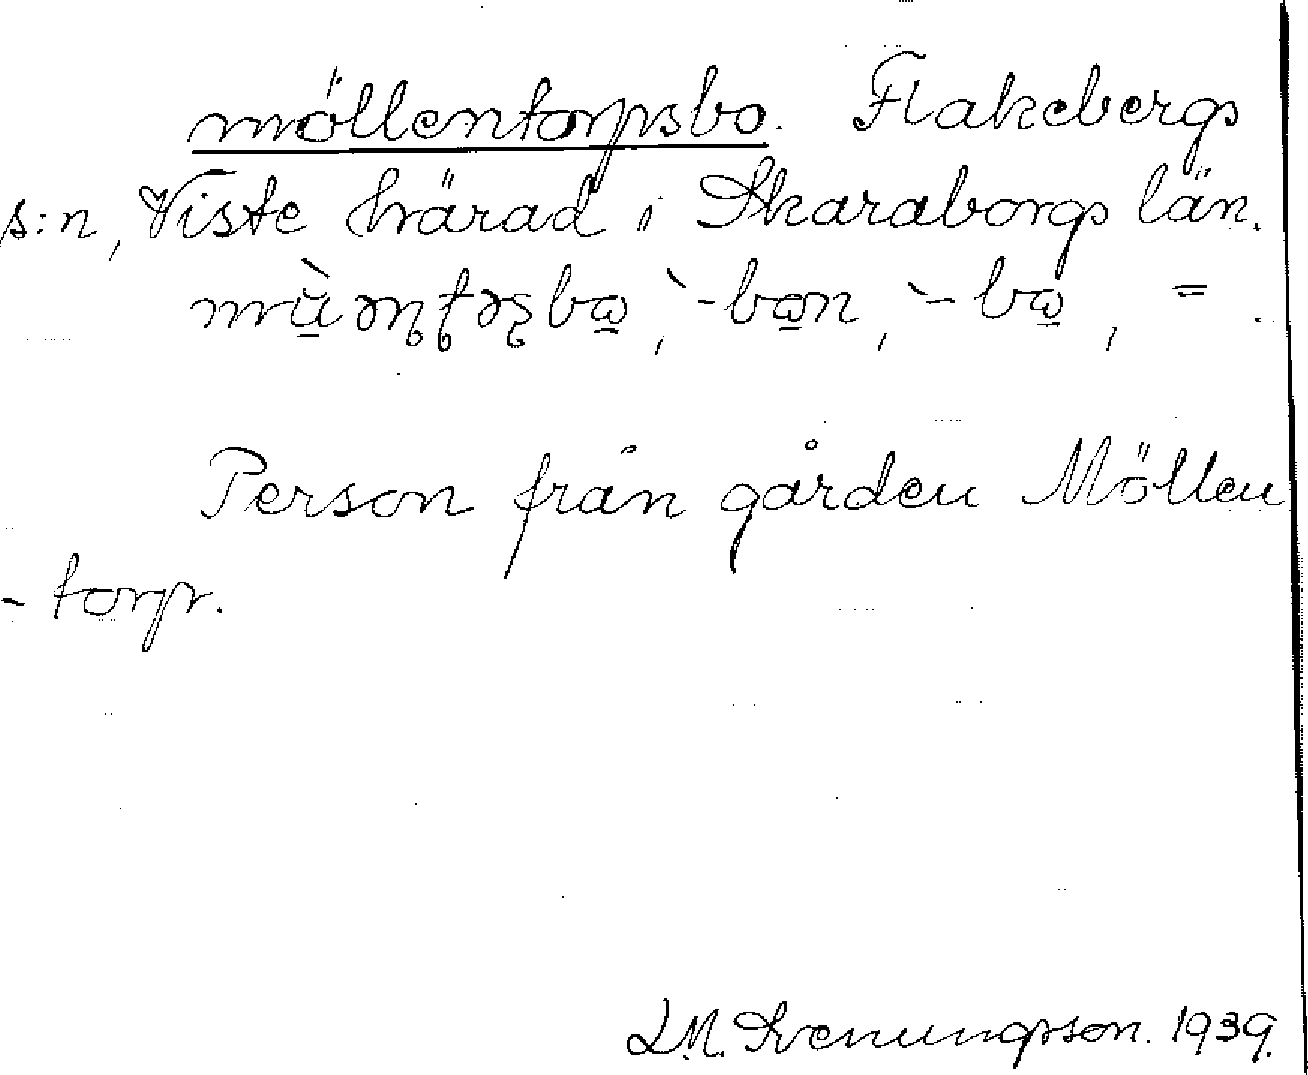 möllentorpsbo. Flakebergs
s:n, Viste härad i Skaraborgs län.
-bo̲n, -bo̲, =.
Person från gården Möllen
-torp.
L.M. Svenungsson. 1939.